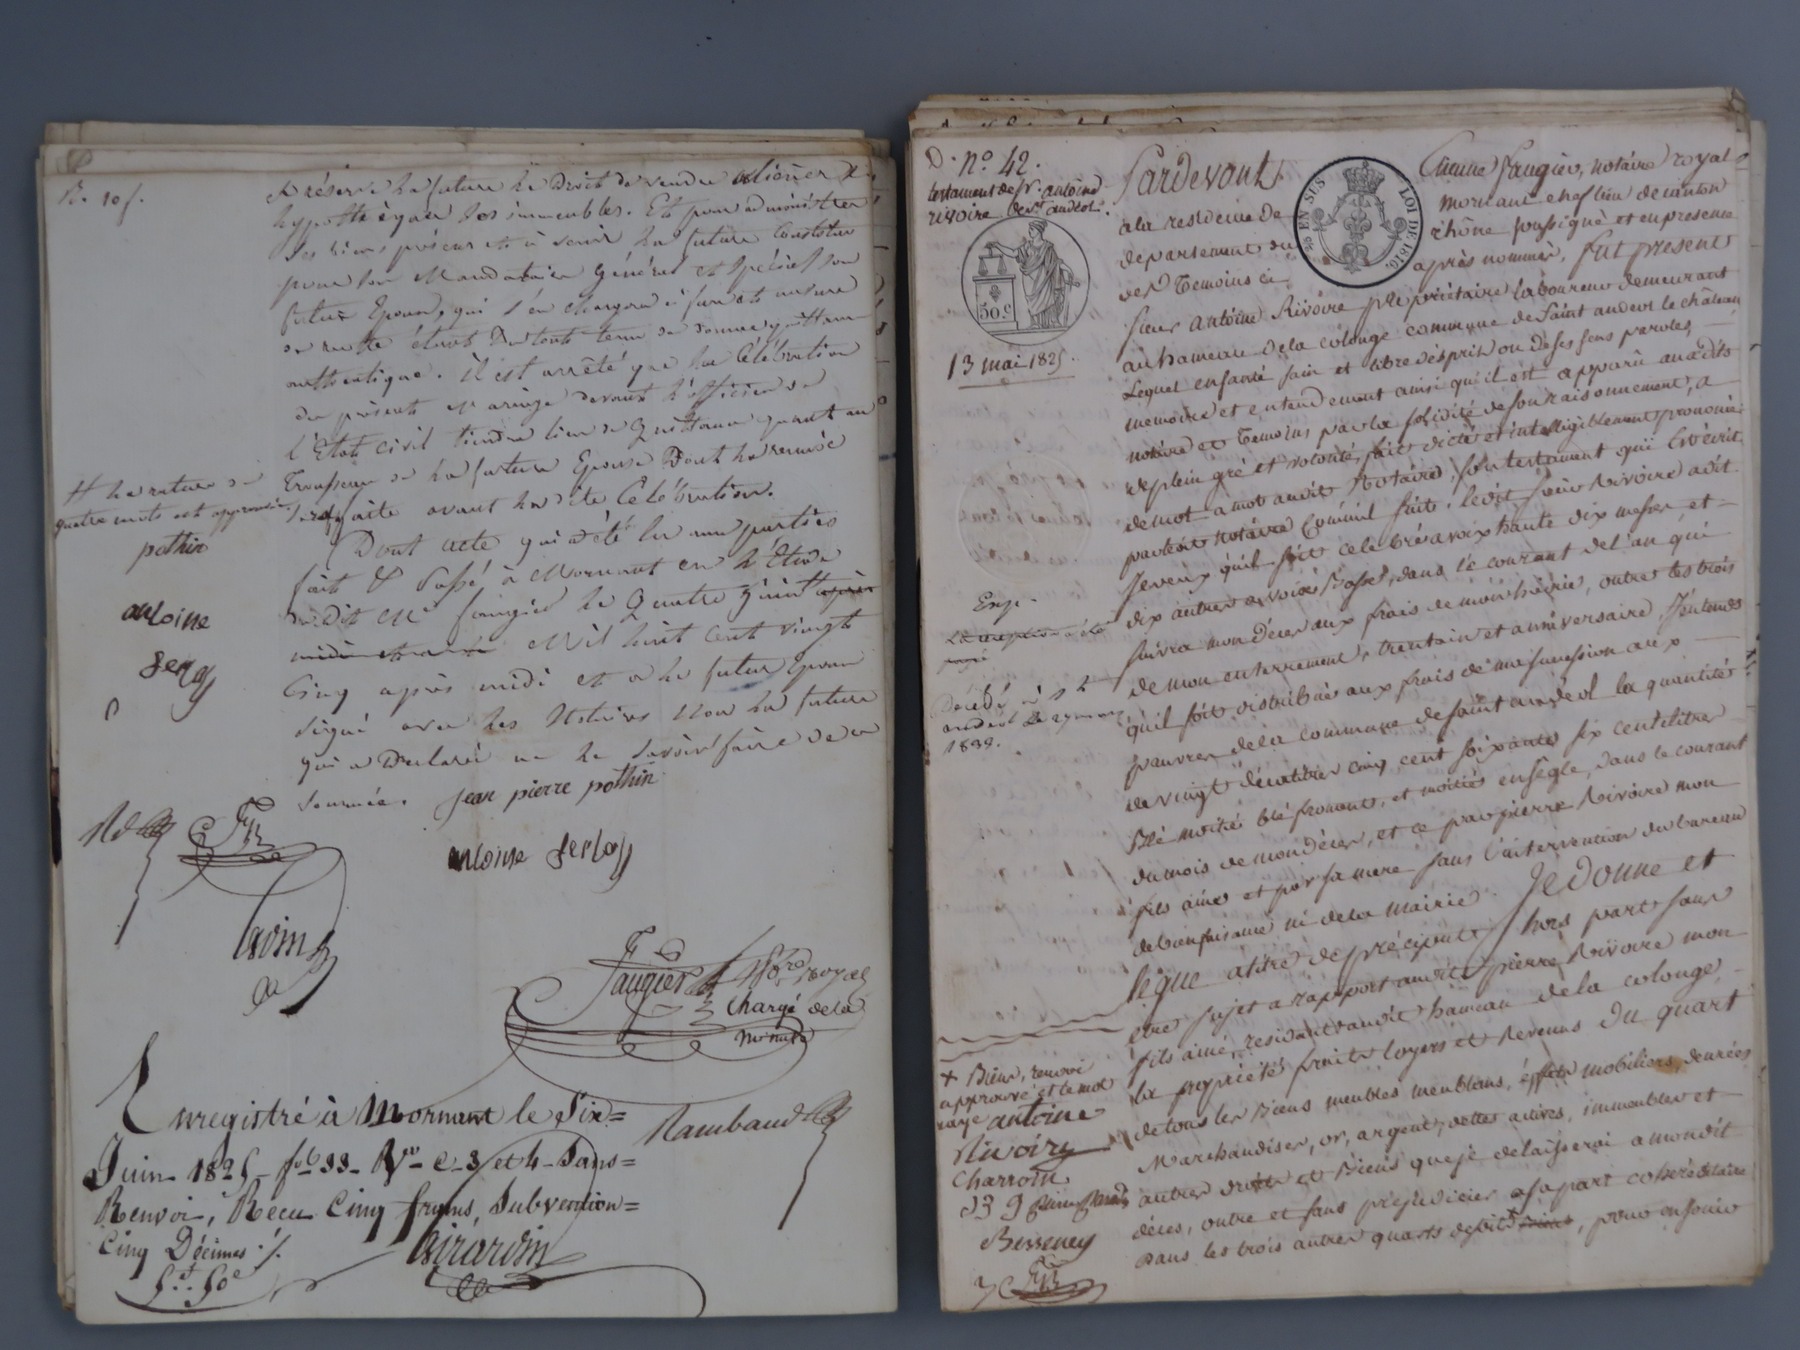 R. 10 f.
réserve la future le Droit de vendre aliéner &
hypothéquer ses immeubles. Et pour administrer
ses biens présens et à venir la future Constitue
pour son Mandataire général et spécial son
futur Epoux, qui s'en chargera
authentique. il est arrêté que la Célébration
du présent mariage devant l'officier de
l'Etat civil tiendra lieu de Quittance quant au
Trousseau de la future Epouse Dont la remise
sera faite avant la dite Célébration.
# la rature de
quatre mots est approuvée
pothin
antoine
Dont acte qui a été lu aux parties
fait & Passé à Mornant en l'Etude
dudit Me faugier le Quatre Juin après
midi Mil huit Cent vingt
Cinq après midi et a le futur Epoux
signé avec les Notaires Non la future
qui a Déclaré ne le savoir faire de ce
sommée. jean pierre pothin
antoine
faugier Nre royal
Chargé de la
minute
Enregistré à Mornant le Six=
Juin 1825 fo 33 Ro C 3 et 4 Sans=
Renvoi, Reçu Cinq francs, Subvention=
Cinq Décimes ./.
5f. 50c
Girardin
Rambaud
D. no. 42.
testament de Sr. antoine
rivoire de St. andéol.
50 c
13 mai 1825.
EN SUS
LOI DE 1816.
Pardevant Etienne faugier, notaire royal
a la residence de mornant chef lieu de canton
departement du rhône soussigné et en presence
des Temoins ci après nommés, fut present
sieur Antoine Rivoire propriétaire laboureur demeurant
au hameau de la colonge commune de Saint andeol le château
Lequel en santé sain et libre d'esprit ou de ses sens paroles,
memoire et entendement ainsi qu'il est apparu auxdits
notaire et Temoins par la solidité de son raisonnement, a
de plein gré et volonté, fait dicté et intelligiblement prononcé
de mot a mot audit Notaire, son testament qui l'a écrit
par ledit notaire Comme suit. ledit sieur Rivoire a dit
Je veux qu'il soit celebré a voix haute dix messes, et
dix autres a voix Basse, dans le courant de l'an qui
suivra mon Décès aux frais de mon hoirie, outre les trois
de mon enterrement, trentain et anniversaire. J'entends
qu'il soit distribué aux frais de ma succession aux
pauvres de la commune de Saint andéol la quantité
de vingt décalitres cinq cent soixante six centilitres
Blé moitié blé froment, et moitié en seigle, dans le courant
du mois de mon décès, et ce par pierre Rivoire mon
fils ainé et par sa mere sans l'intervention du bureau
de bienfaisance ni de la mairie. Je Donne et
lègue a titre de préciput, hors part sans
etre sujet a rapport audit pierre Rivoire mon
fils ainé, residant audit hameau de la colonge,
la propriété fruits loyers et Revenus Du quart
de tous les Biens meubles meublans, effets mobiliers, denrées
Marchandises, or, argent, dettes actives, immeubles et
autres droits et Biens que je delaisserai a mondit
décès, outre et sans prejudicier a sa part cohéréditaire
Dans les trois autres quarts desdits, pour en jouir
Exp.
Décédé à St
andéol le 27 mars
1832.
+ Biens, renvoi
approuvé et le mot
rayé antoine
Rivoire
Charroin
Besseney